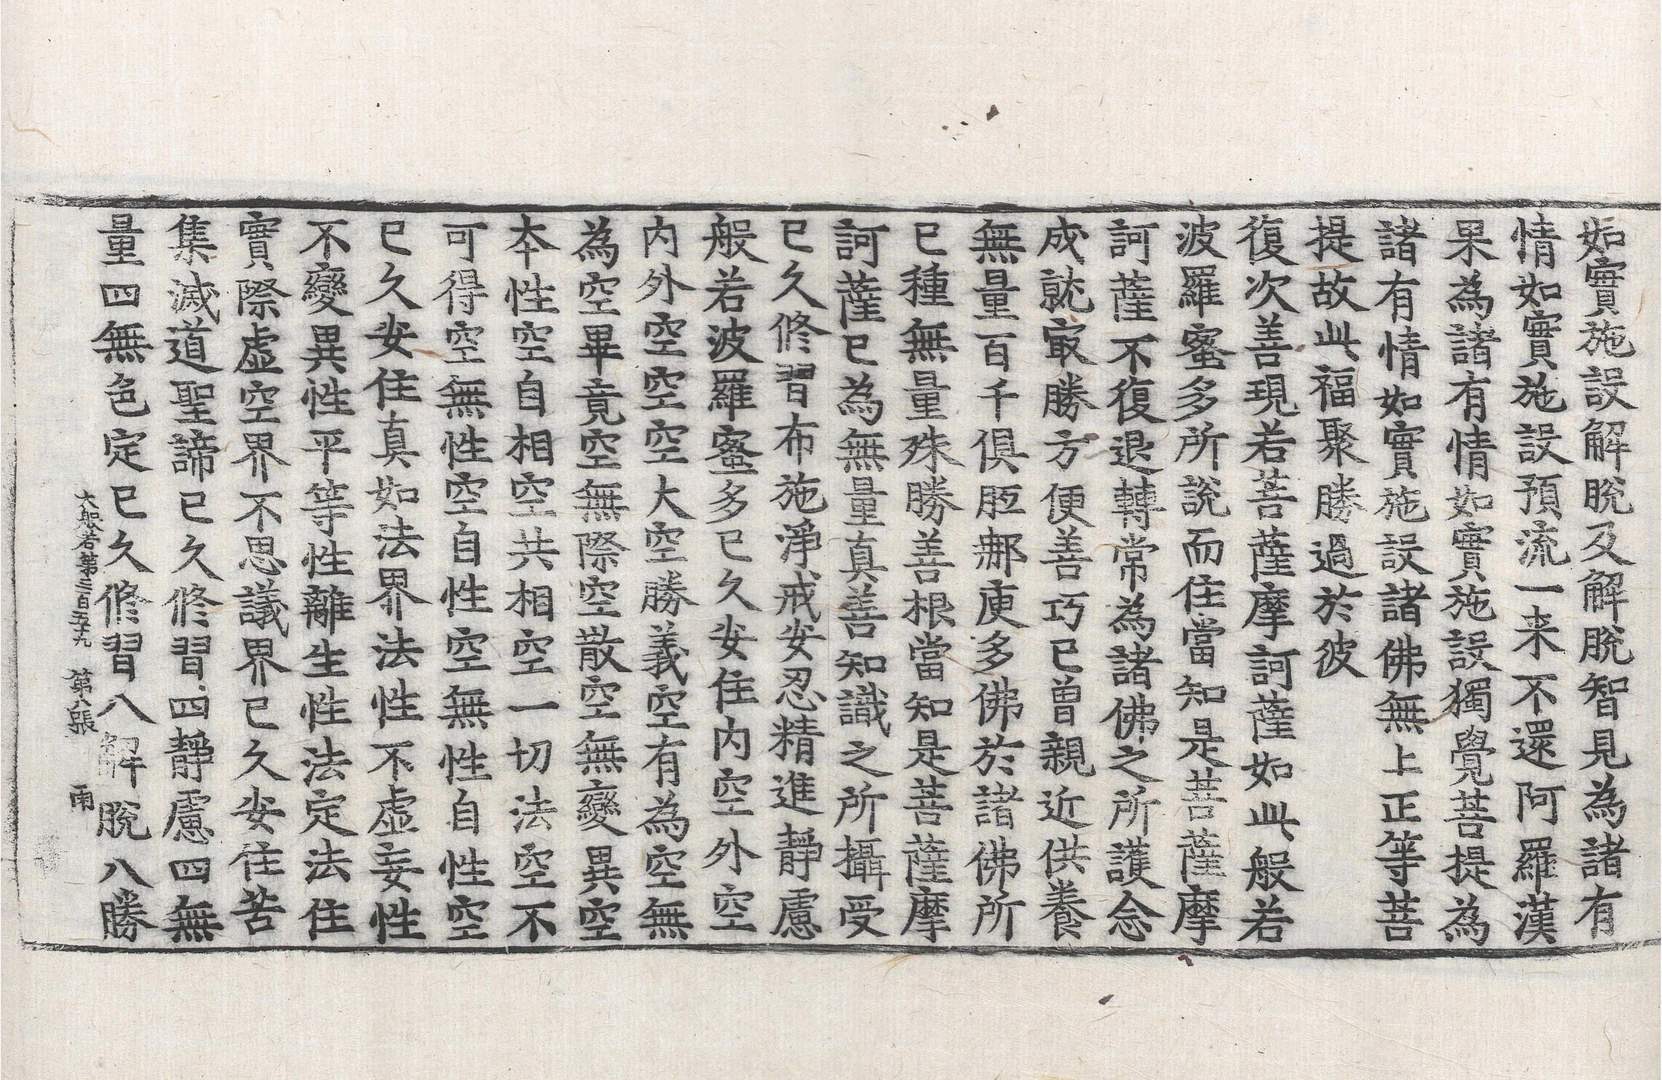 如實施設解脫及解脫智見為諸有
情如實施設預流一来不還阿羅漢
果為諸有情如實施設獨覺菩提為
諸有情如實施設諸佛無上正等菩
提故此福聚勝過於彼
復次善現若菩薩摩訶薩如此般若
波羅蜜多所說而住當知是菩薩摩
訶薩不復退轉常為諸佛之所護念
成就㝡勝方便善巧已曾親近供養
無量百千俱胝那庾多佛於諸佛所
已種無量殊勝善根當知是菩薩摩
訶薩已為無量真善知識之所攝受
已久修習布施淨戒安忍精進靜慮
般若波羅蜜多已久安住內空外空
內外空空空大空勝義空有為空無
為空畢竟空無際空散空無變異空
本性空自相空共相空一切法空不
可得空無性空自性空無性自性空
已久安住真如法界法性不虛妄性
不變異性平等性離生性法定法住
實際虛空界不思議界已久安住苦
集滅道聖諦已久修習四靜慮四無
量四無色定已久修習八解脫八勝
大般若第三百五十九 第八張 雨